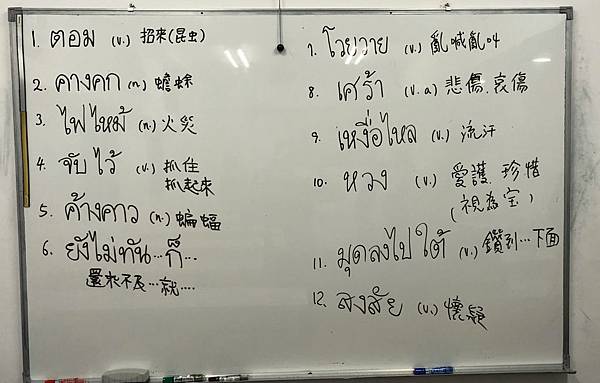 1. ตอม (v.) 招來(昆虫)
2. คางคก (n.) 蟾蜍
3. ไฟไหม้ (n.) 火災
4. จับไว้ (v.) 抓住
抓起來
5. ค้างคาว (n.) 蝙蝠
6. ยังไม่ทัน...ก็...
還來不及...就....
7. โวยวาย (v.) 亂喊亂叫
8. เศร้า (v.a) 悲傷、哀傷
9. เหงื่อไหล (v.) 流汗
10. หวง (v.) 愛護、珍惜
(視為宝)
11. มุดลงไปใต้ (v.) 鑽到...下面
12. สงสัย (v.) 懷疑